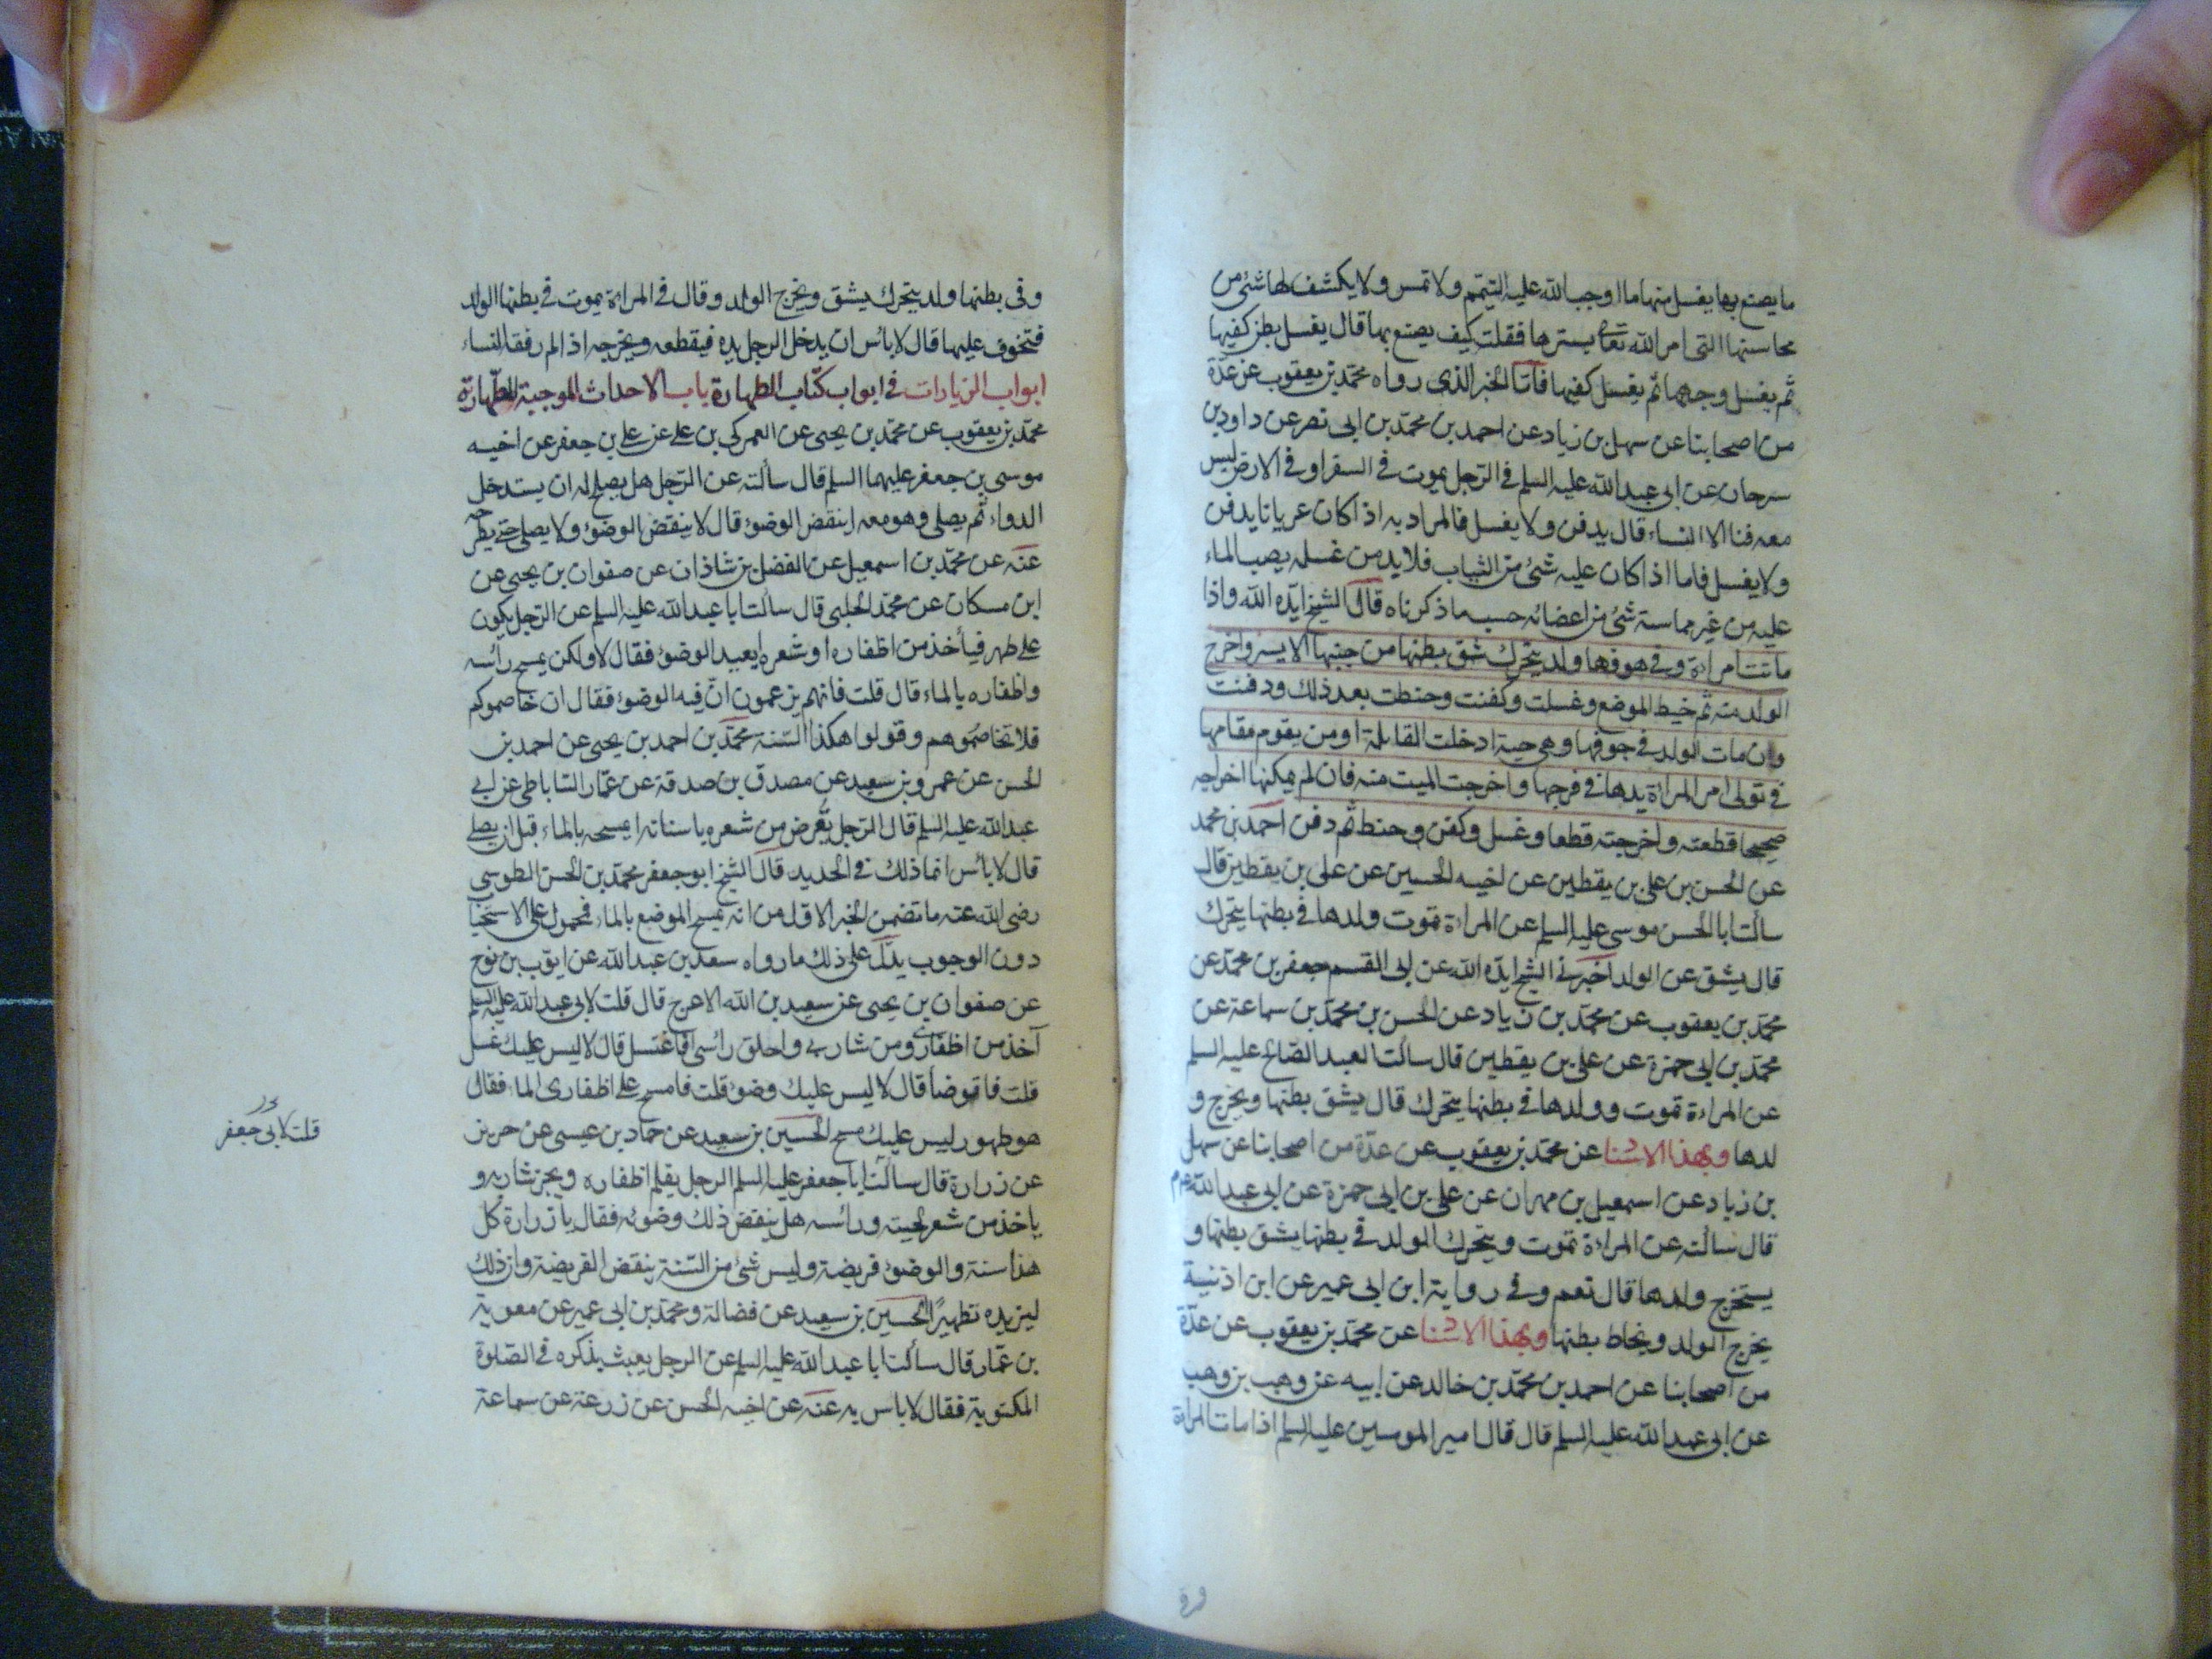 ما يصنع بها يغسل منها ما اوجب الله عليه التيمم ولا تمس ولا يكشف لها شئ من
محاسنها التى امر الله تعالى بسترها فقلت كيف يصنع بها قال يغسل بطن كفيها
ثم يغسل وجهها ثم يغسل كفيها فامّا الخبر الذى رواه محمّد بن يعقوب عن عدّة
من اصحابنا عن سهل بن زياد عن احمد بن محمّد بن ابى نصر عن داود بن
سرحان عن ابى عبد الله عليه السلم فى الرّجل يموت فى السفر او فى الارض ليس
معه فنا الا النساء قال يدفن ولا يغسل فالمراد به اذا كان عريانا يدفن
ولا يغسل فاما اذا كان عليه شئ من الثياب فلابد من غسله يصب الماء
عليه من غير مماسة شئ من اعضائه حسب ما ذكرناه قال الشيخ ايّده الله واذا
ماتت امراءة وفى هوفها ولد يتحرك شق بطنها من جنبها الايسر واخرج
الولد منه ثم خيط الموضع وغسلت وكفنت وحنطت بعد ذلك ودفنت
وان مات الولد فى جوفها وهى حية ادخلت القابلة او من يقوم مقامها
فى تولى امر المراءة يدها فى فرجها واخرجت الميت منه فان لم يمكنها اخراجه
صحيحا قطعته واخرجته قطعا وغسل وكفن وحنط ثم دفن احمد بن محمد
عن الحسن بن على بن يقطين عن اخيه الحسين عن على بن يقطين قال
سألت ابا الحسن موسى عليه السلم عن المراءة تموت ولدها فى بطنها يتحرك
قال يشق عن الولد اخبرنى الشيخ ايّده الله عن ابى القسم جعفر بن محمّد عن
محمّد بن يعقوب عن محمّد بن زياد عن الحسن بن محمّد بن سماعة عن
محمّد بن ابى حمزة عن على بن يقطين قال سألت العبد الصّالح عليه السلم
عن المراءة تموت وولدها فى بطنها يتحرك قال يشق بطنها ويخرج و
لدها وبهذا الاسنا عن محمّد بن يعقوب عن عدّة من اصحابنا عن سهل
بن زياد عن اسمعيل بن مهران عن على بن ابى حمزة عن ابى عبد الله عم
قال سألته عن المراءة تموت ويتحرك الولد فى بطنها يشق بطنها و
يستخرج ولدها قال نعم وفى رواية ابن ابى عمير عن ابن اذنية
يخرج الولد ويخاط بطنها وبهذا الاسنا عن محمّد بن يعقوب عن عدّة
من اصحابنا عن احمد بن محمّد بن خالد عن ابيه عن وهب بن وهب
عن ابى عبد الله عليه السلم قال قال امير المومنين عليه السلم اذا ماتت المراءة
وفى بطنها ولد يتحرك يشق ويخرج الولد وقال فى المراءة يموت فى بطنها الولد
فتخوف عليها قال لا بأس ان يدخل الرجل يده فيقطعه ويخرجه اذا لم رفقه النساء
ابواب الزيادات فى ابواب كتاب الطهارة باب الاحداث الموجبة للطّهارة
محمّد بن يعقوب عن محمّد بن يحيى عن العمركى بن على عن على بن جعفر عن اخيه
موسى بن جعفر عليهما السلم قال سألته عن الرّجل هل يصلح له ان يستدخل
الدواء ثم يصلى وهو معه اينقض الوضوء قال لا ينقض الوضوء ولا يصلى حتى يطرحه
عنه عن محمّد بن اسمعيل عن الفضل بن شاذان عن صفوان بن يحيى عن
ابن مسكان عن محمّد الحلبى قال سألت ابا عبد الله عليه السلم عن الرّجل يكون
على طهر فيأخذ من اظفاره او شعره ايعيد الوضوء فقال لا ولكن يمسح رأسه
واظفاره بالماء قال قلت فانهم يزعمون انّ فيه الوضوء فقال ان خاصموكم
فلا تخاصموهم وقولوا هكذا السّنة محمّد بن احمد بن يحيى عن احمد بن
الحسن عن عمرو بن سعيد عن مصدق بن صدقة عن عمّار السّاباطى عن ابى
عبد الله عليه السلم قال الرّجل يقرض من شعره باسنانه ايمسحه بالماء قبل ان يصلى
قال لا بأس انما ذلك فى الحديد قال الشيخ ابو جعفر محمّد بن الحسن الطوسى
رضى الله عنه ما تضمن الخبر الاول من انه يمسح الموضع بالماء فمحمول على الاستحبا
دون الوجوب يدلّ على ذلك ما رواه سعد بن عبد الله عن ايّوب بن نوح
عن صفوان بن يحيى عن سعيد بن الله الاعرج قال قلت لابى عبد الله عليه السلم
آخذ من اظفارى ومن شاربى واحلق رأسى افاغتسل قال لا ليس عليك غسل
قلت فاتوضأ قال لا ليس عليك وضوء قلت فامسح على اظفارى الماء فقال
هو طهور ليس عليك مسح الحسين بن سعيد عن حماد بن عيسى عن حريز
عن زرارة قال سألت ابا جعفر عليه السلم الرجل يقلم اظفاره ويجز شاربه و
ياخذ من شعر لحيته ورأسه هل ينقض ذلك وضوئه فقال يا زرارة كل
هذا سنة والوضوء فريضة وليس شئ من السّنة ينقض الفريضة وان ذلك
ليزيده تطهيرًا الحسين بن سعيد عن فضالة ومحمّد بن ابى عمير عن معوية
بن عمّار قال سألت ابا عبد الله عليه السلم عن الرجل يعبث بذكره فى الصّلوة
المكتوبة فقال لا باس به عنه عن اخيه الحسن عن زرعة عن سماعة
قلت لابى جعفر